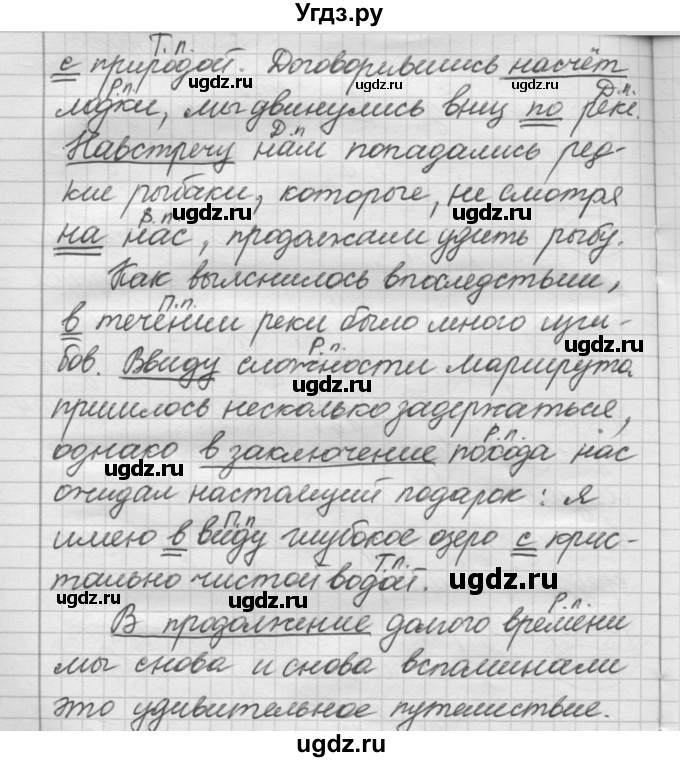 Угдз.ру
Т.п.
с природой. Договорившись насчёт
Р.п. ugdz.ru ugdz.ru Д.п.
лодки, мы двинулись вниз по реке.
ugdz.ru Д.п
Навстречу нам попадались ред-
кие рыбаки, которые, не смотря
ugdz.ru В.п. ugdz.ru
на нас, продолжали удить рыбу.
Как выяснилось впоследствии,
П.п.
в течении реки было много изги-
Р.п. ugdz.ru
бов. Ввиду сложности маршрута
ugdz.ru
пришлось несколько задержаться,
Р.п.
однако в заключение похода нас
ugdz.ru
ожидал настоящий подарок: я
П.п ugdz.ru
имею в виду глубокое озеро с крис-
Т.п.
тально чистой водой. ugdz.ru
ugdz.ru ugdz.ru Р.п.
В продолжение долгого времени
ugdz.ru
мы снова и снова вспоминали
ugdz.ru
это удивительное путешествие.
ugdz.ru